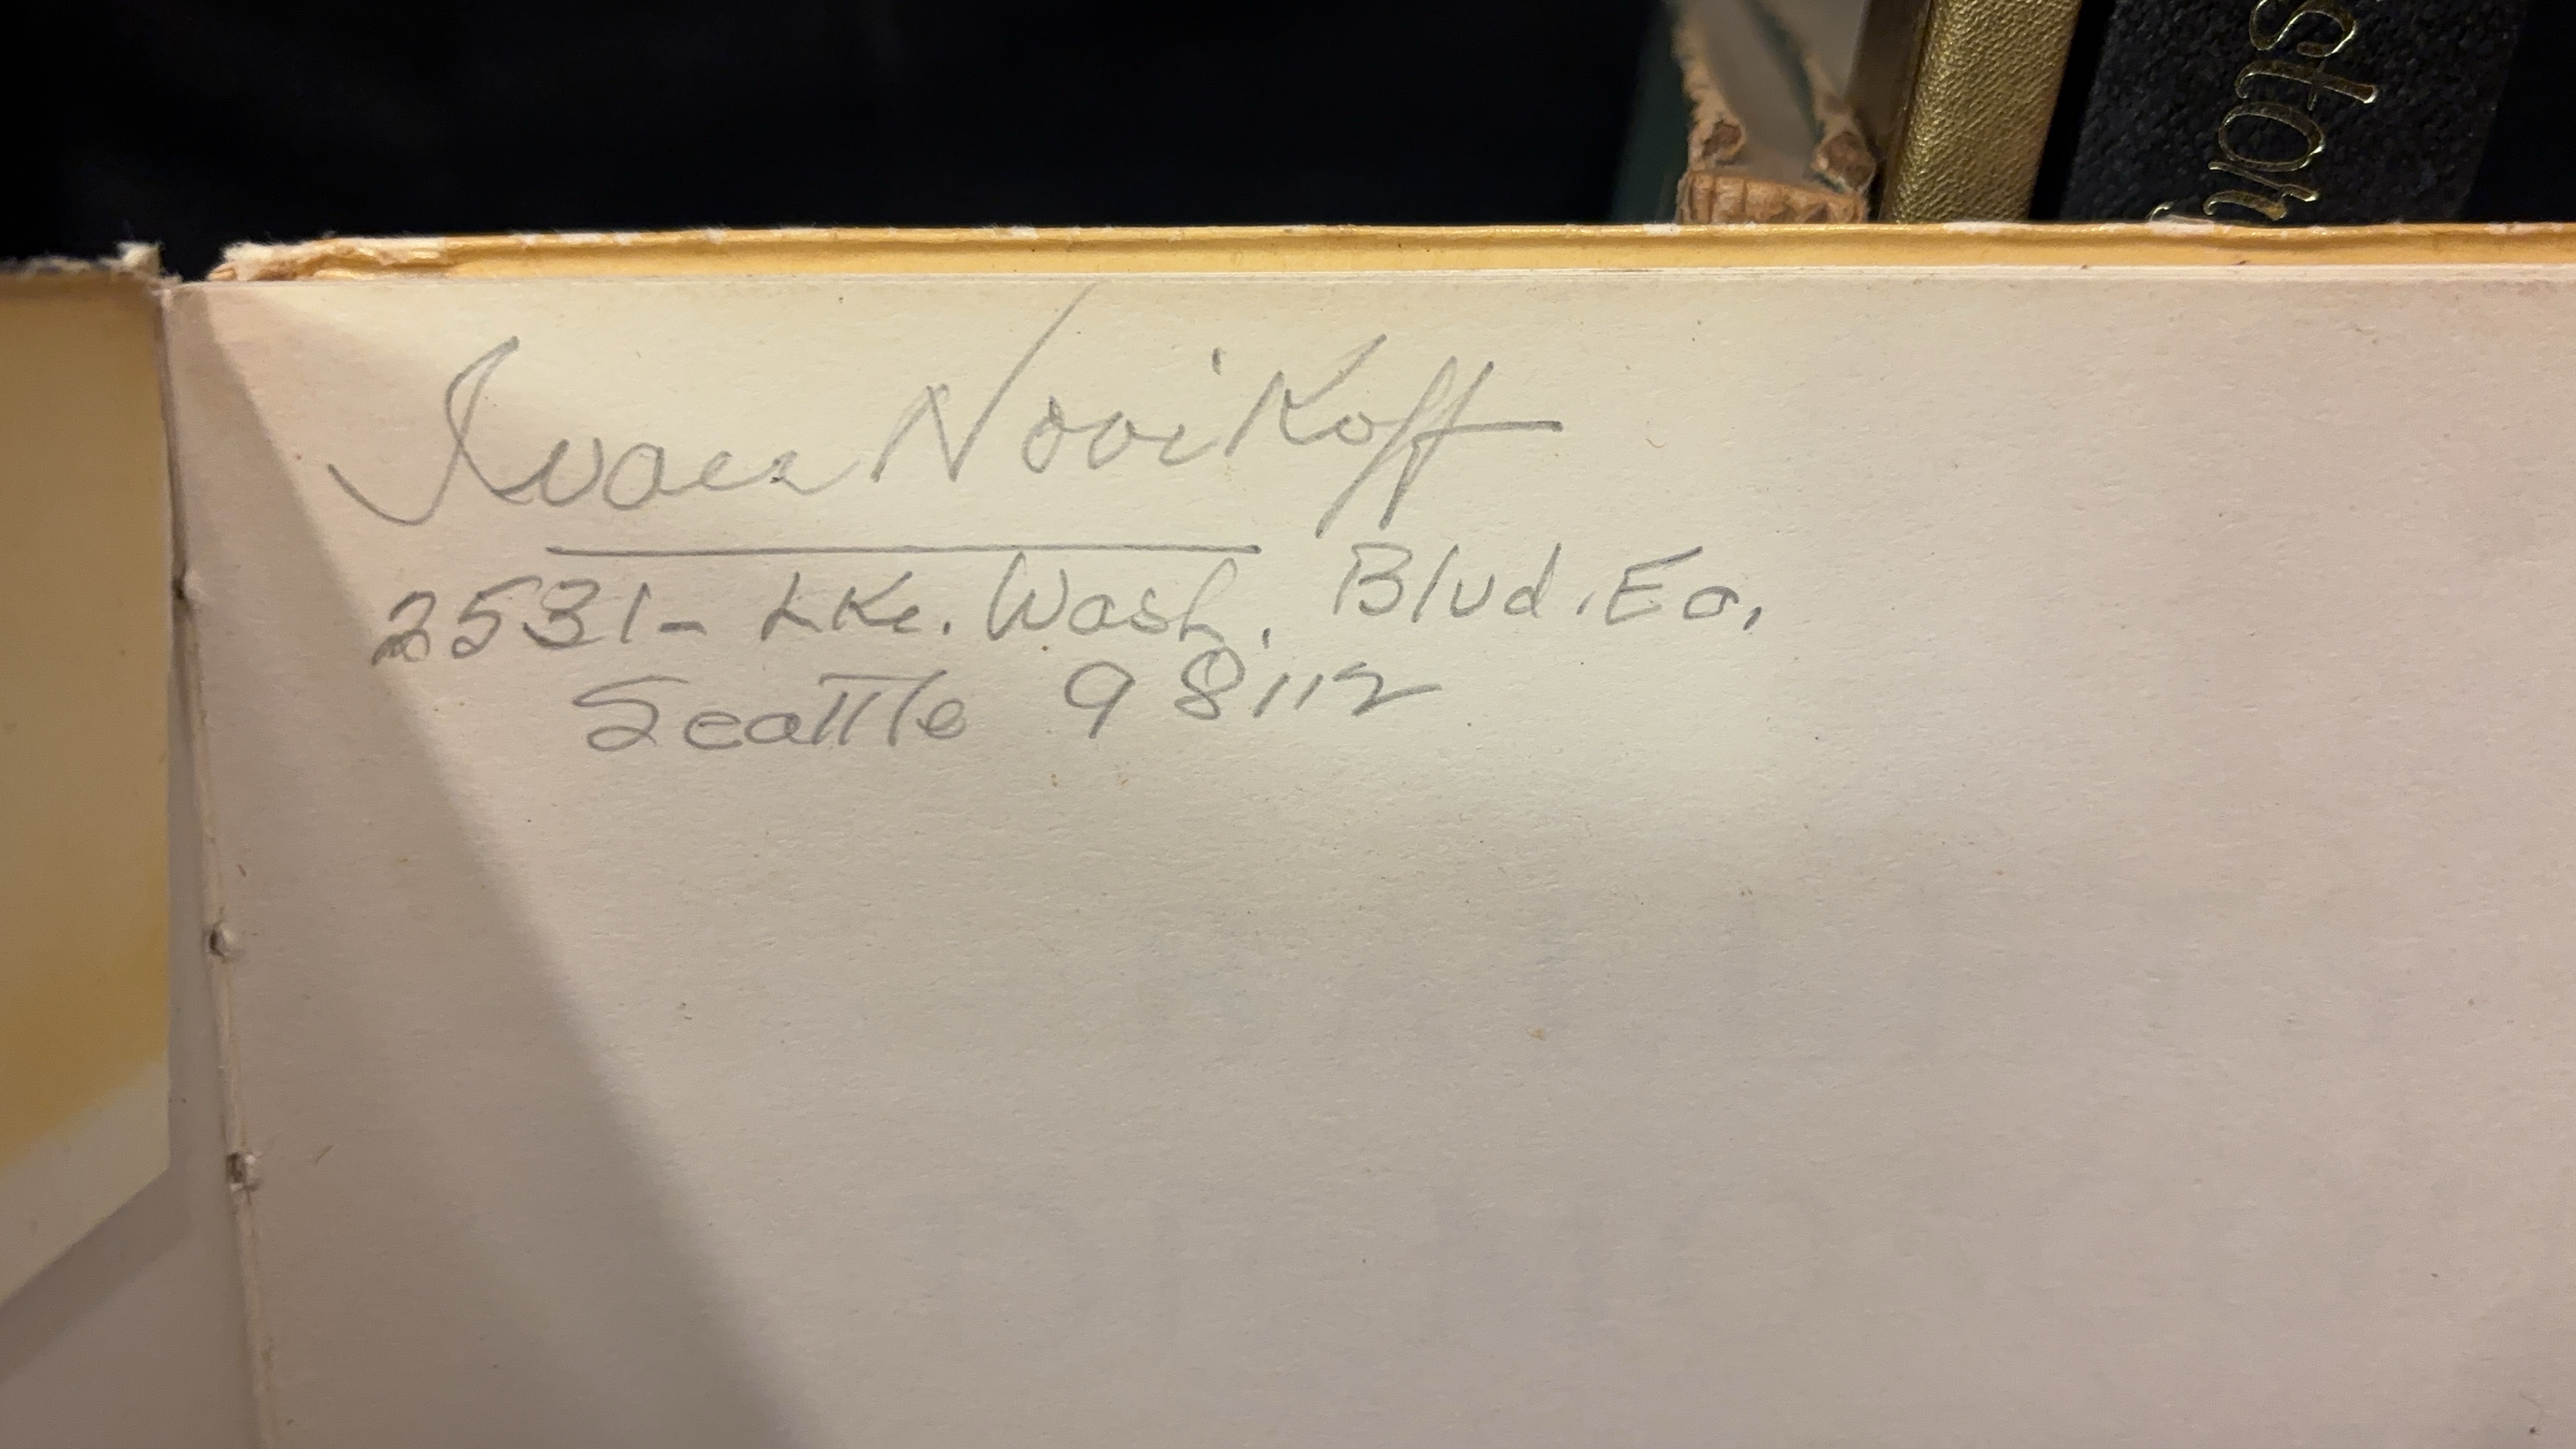 story
Ivan Novikoff
2531- Lke. Wash. Blvd. Ea,
Seattle 98112